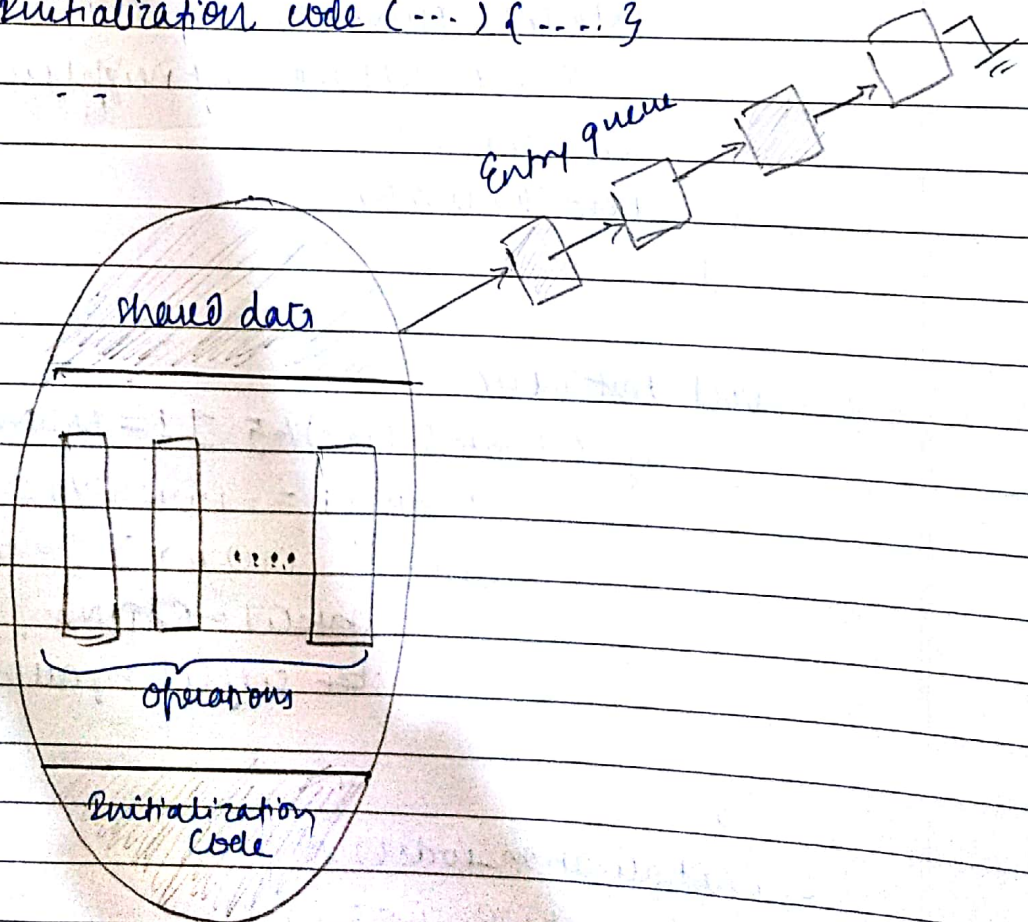 Initialization code (...) { .... }
Entry queue
shared data
....
operations
Initialization
Code